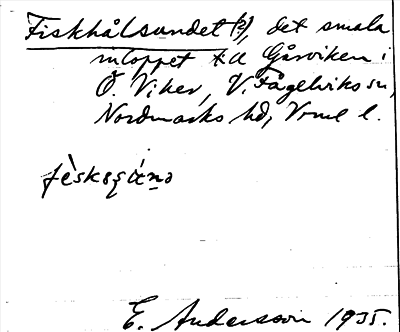 Fiskhålsundet (2), det smala
inloppet till Gårviken i
Ö. Viker, V. Fågelviks sn,
Nordmarks hd, Vrml l.
E. Andersson 1935.